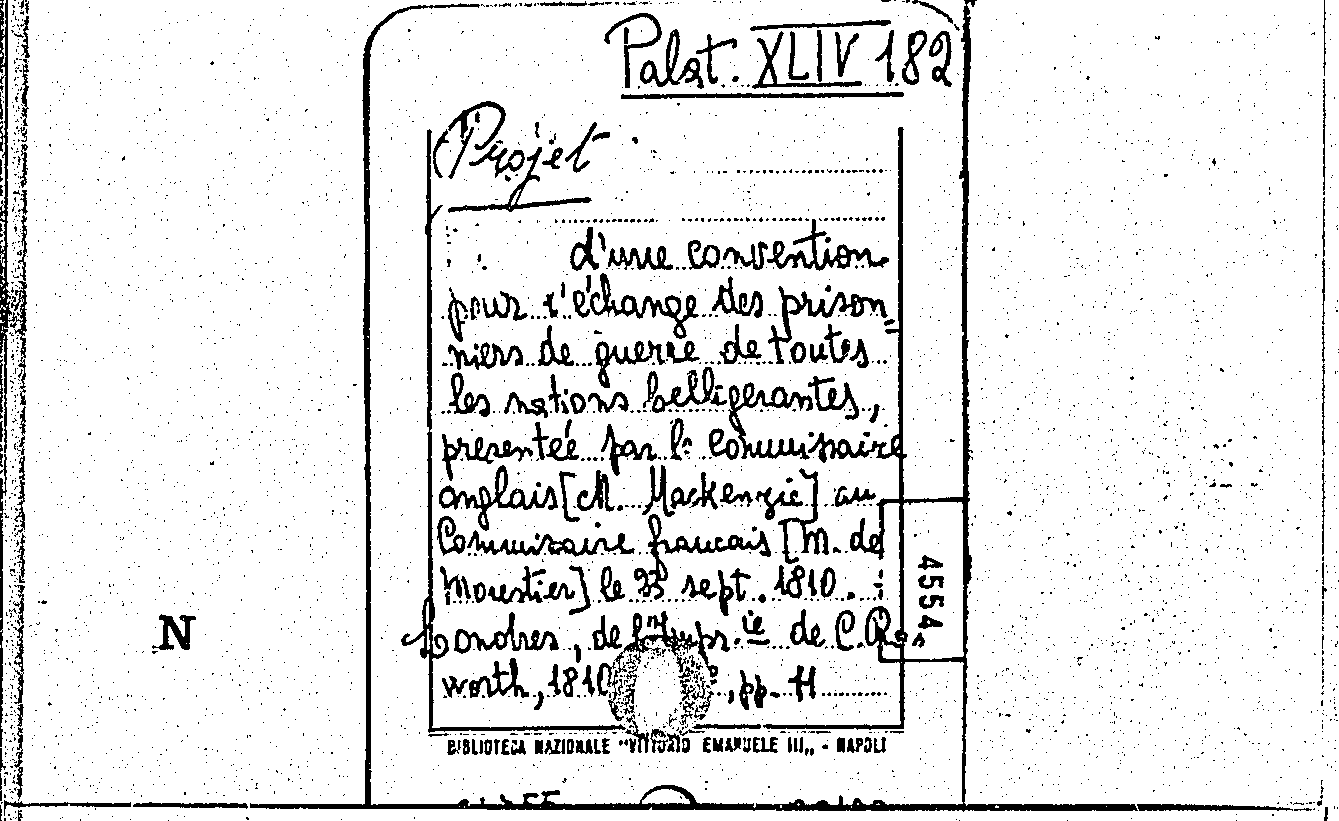 Palat. XLIV 182
Projet
d'une convention
pour l'échange des prison„
niers de guerre de toutes
les nations belligerantes,
presentée par le Commissaire
anglais [M. Mackenzie] au
Commissaire français [M. de
Moustier] le 23 sept. 1810.
Londres, de l'Imps.ie de C. Ros
worth, 1810 , pp. 11
BIBLIOTECA NAZIONALE "VITTORIO EMANUELE III„ - NAPOLI
4554
N